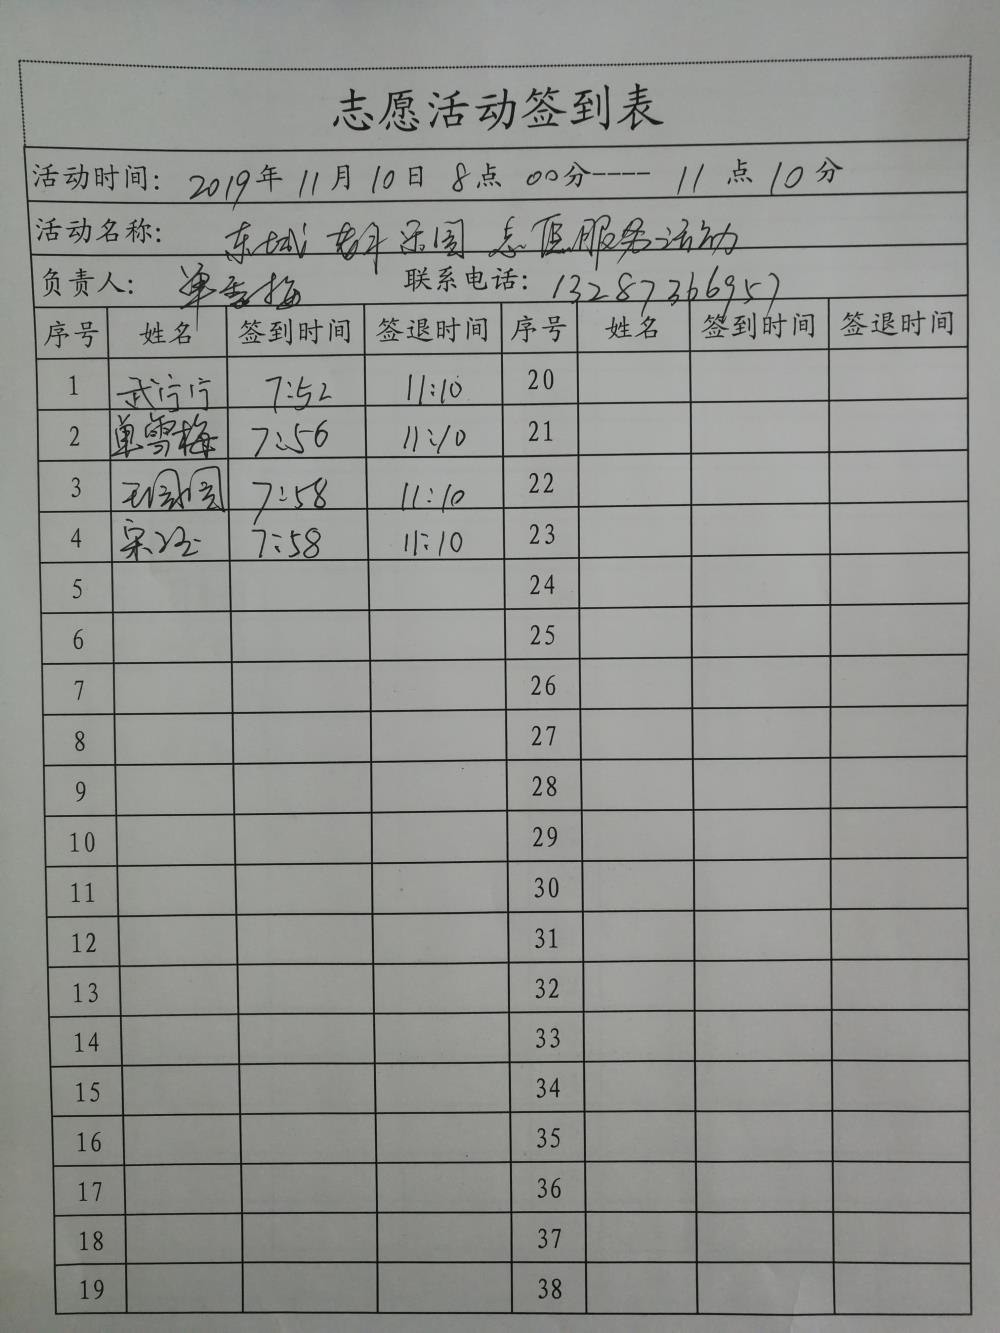 志愿活动签到表
活动时间: 2019年 11月 10日 8点 00分---- 11点 10分
活动名称: 东城 乐园 志愿服务活动
负责人: 单雪梅 联系电话: 13287366957
序号 姓名 签到时间 签退时间 序号 姓名 签到时间 签退时间
1 武宁宁 7:52 11:10 20
2 单雪梅 7:56 11:10 21
3 王园园 7:58 11:10 22
4 宋 7:58 11:10 23
5 24
6 25
7 26
8 27
9 28
10 29
11 30
12 31
13 32
14 33
15 34
16 35
17 36
18 37
19 38